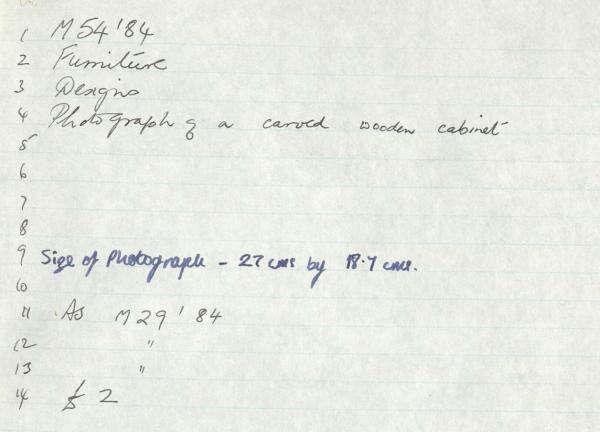 1 M54'84
2 Furniture
3 Designs
4 Photograph of a carved wooden cabinet
5
6
7
8
9 Size of Photograph - 27 cms by 18.7 cms.
10
11 As M29'84
12 "
13 "
14 £2